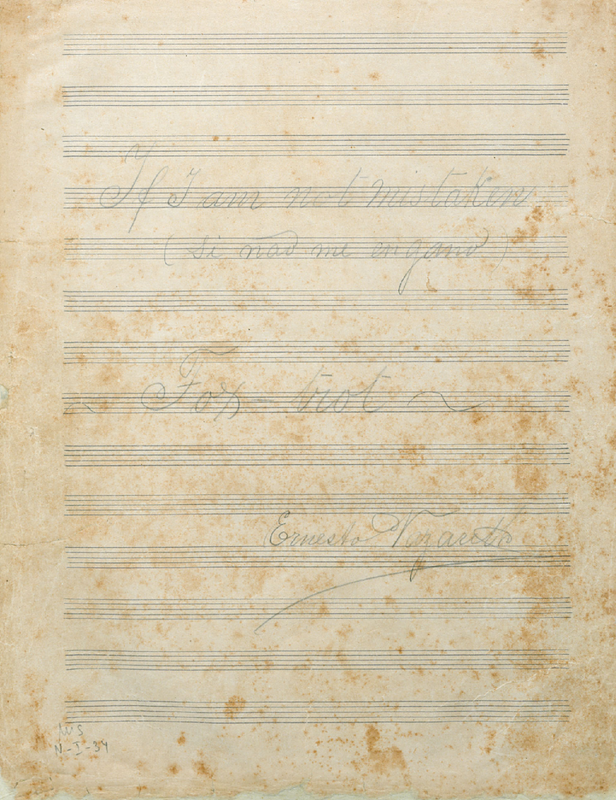 If I am not mistaken
(si não me engano)
Fox-trot
Ernesto Nazareth
MS
N-I-34